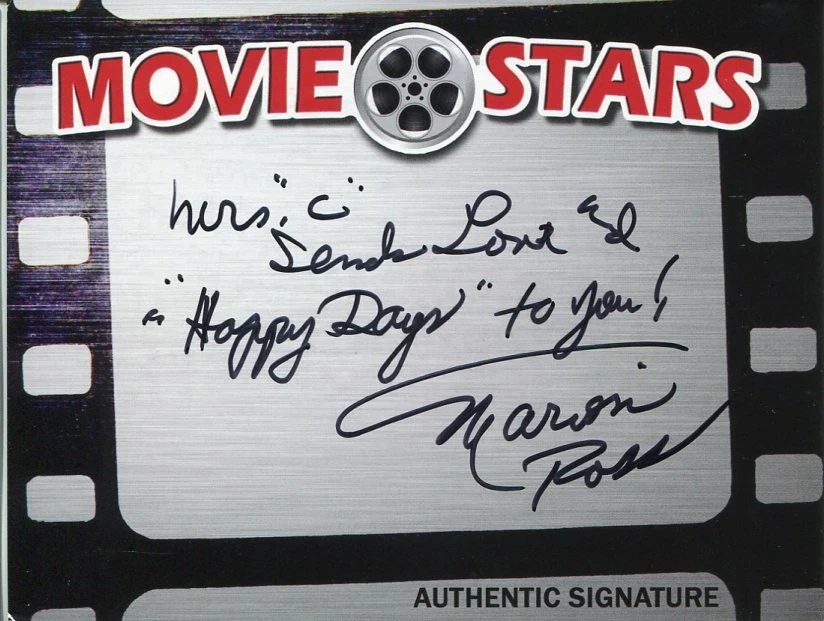 MOVIE STARS
Mrs. "C"
Sends Love and
a "Happy Days" to you!
Marion
Ross
AUTHENTIC SIGNATURE